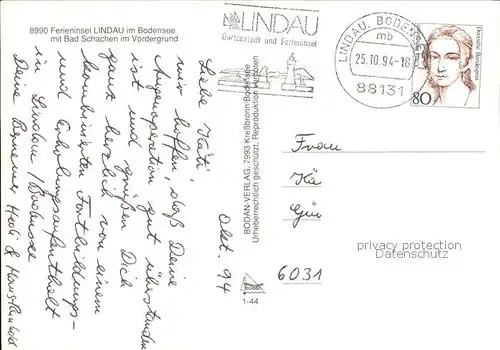 8990 Ferieninsel LINDAU im Bodensee
mit Bad Schachen im Vordergrund
LINDAU
Gartenstadt und Ferieninsel
LINDAU, BODENSEE
mb
25.10.94-18
88131
Deutsche Bundespost
80
Okt. 94
Liebe Käti!
wir hoffen, daß Deine
Augenoperation gut überstanden
ist und grüßen Dich
ganz herzlich von einem
kombinierten Fortbildungs-
und Erholungsaufenthalt
in Lindau/Bodensee
Deine Hedi & Hans
BODAN-VERLAG, 7993 Kreßbronn/Bodensee
Urheberrechtlich geschützt. Reproduktion verboten
1-44
Frau
Kä
Gü
6031
privacy protection
Datenschutz